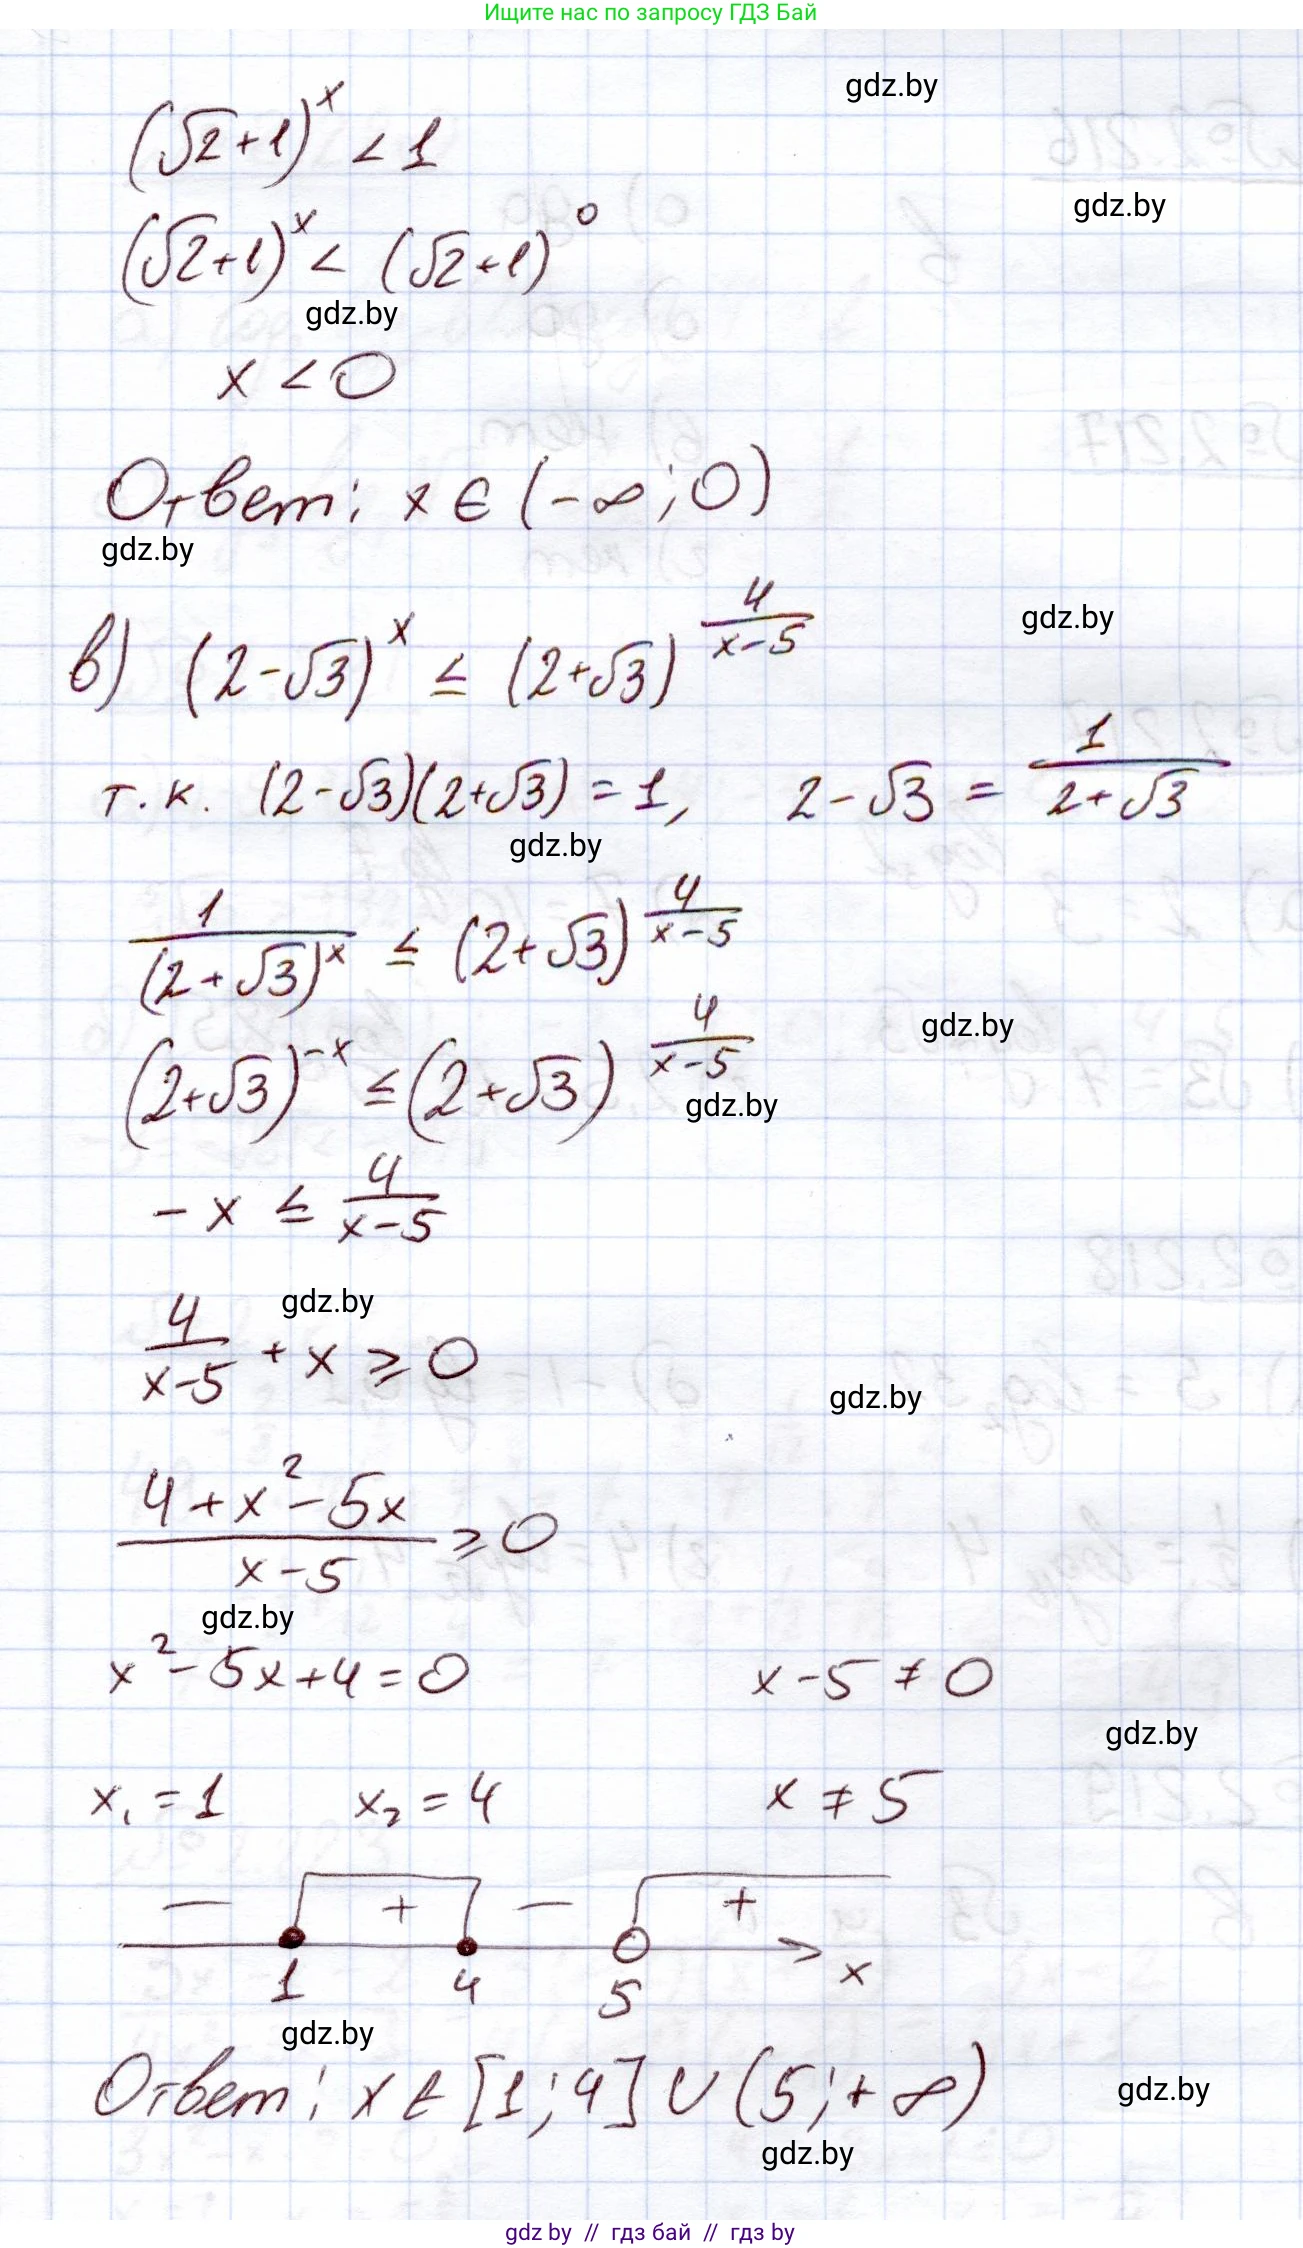 Ищите нас по запросу ГДЗ Бай
gdz.by
(√2+1)^x < 1
gdz.by
(√2+1)^x < (√2+1)^0
gdz.by
x < 0
Ответ: x ∈ (-∞; 0)
gdz.by
в) (2-√3)^x ≤ (2+√3)^(4/(x-5))
gdz.by
т.к. (2-√3)(2+√3) = 1, 2-√3 = 1/(2+√3)
gdz.by
1/(2+√3)^x ≤ (2+√3)^(4/(x-5))
gdz.by
(2+√3)^(-x) ≤ (2+√3)^(4/(x-5))
gdz.by
-x ≤ 4/(x-5)
gdz.by
4/(x-5) + x ≥ 0
gdz.by
(4+x²-5x)/(x-5) ≥ 0
gdz.by
x²-5x+4=0 x-5 ≠ 0
gdz.by
x₁ = 1 x₂ = 4 x ≠ 5
− + − +
1 4 5 x
gdz.by
Ответ: x ∈ [1; 4] ∪ (5; +∞)
gdz.by
gdz.by
gdz by // гдз бай // гдз by